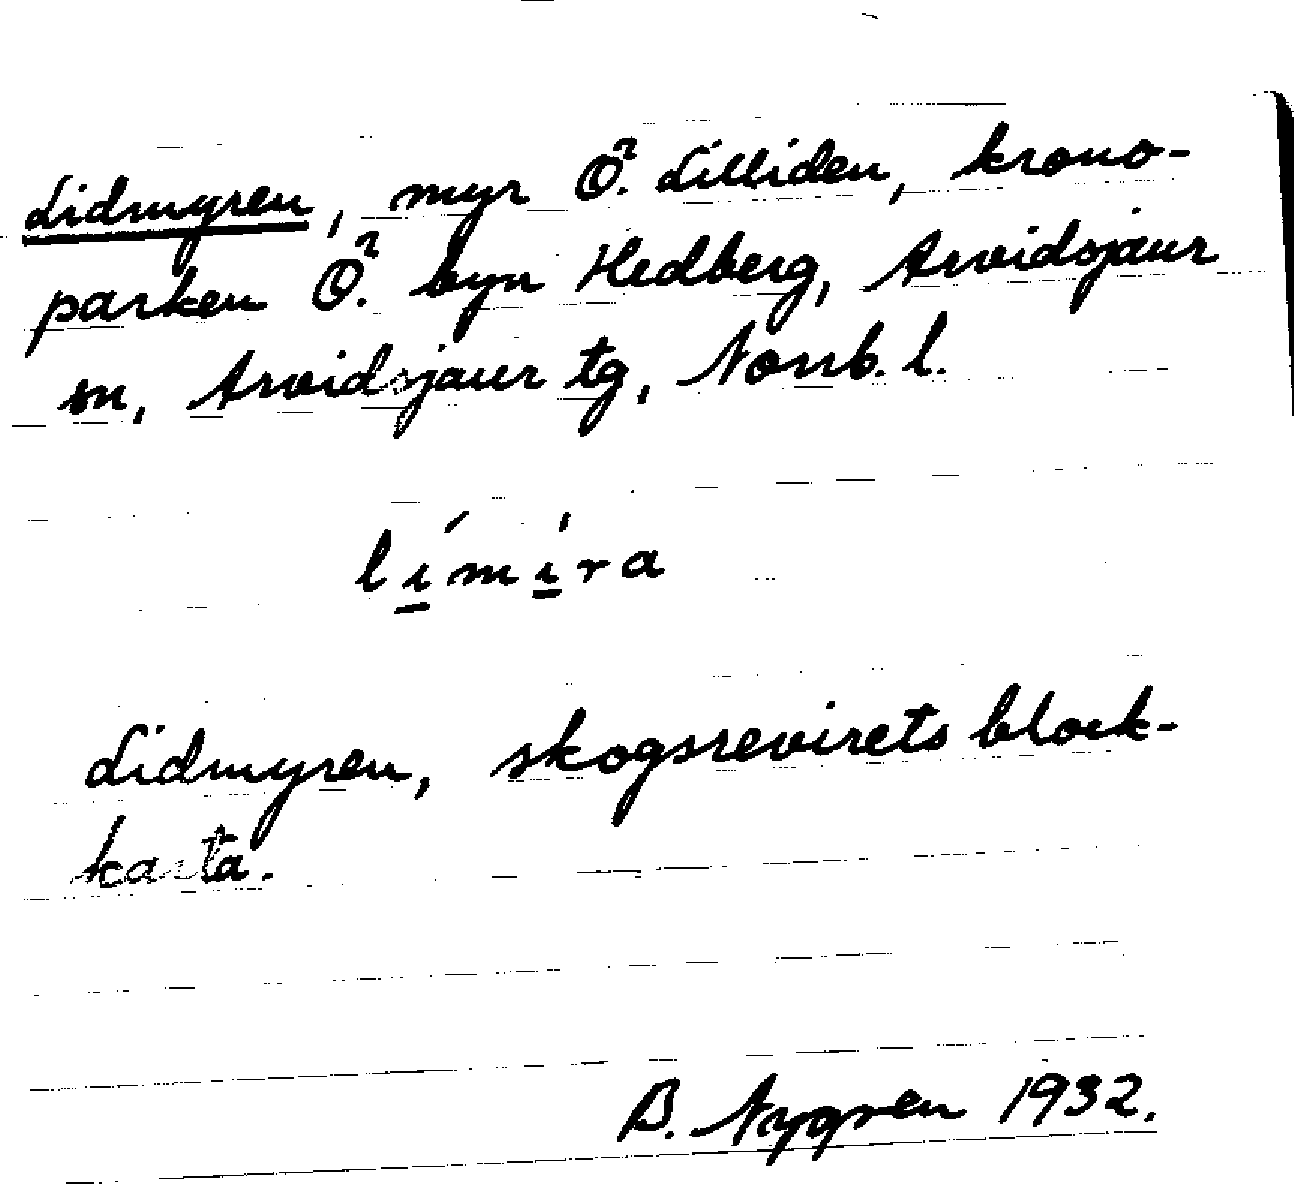 Lidmyren, myr Ö². Lilliden, krono-
parken Ö². byn Hedberg, Arvidsjaur
sn, Arvidsjaur tg, Norrb. l.
límí̱ra
Lidmyren, skogsrevirets block-
karta.
B. Nygren 1932.